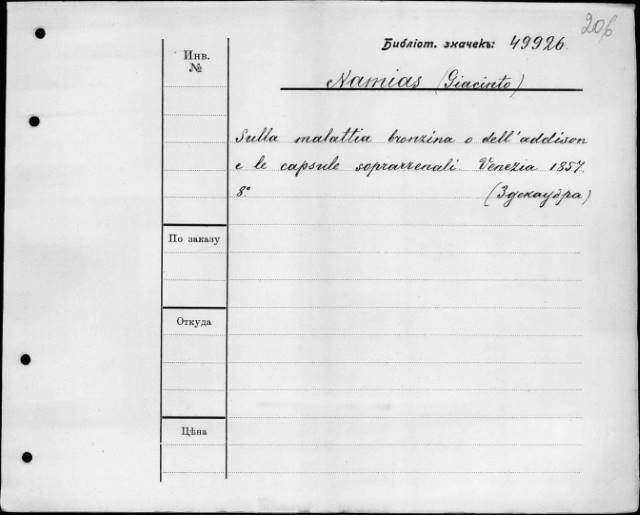 206
Библіот. значекъ: 49926.
Инв.
№
Namias (Giacinto)
Sulla malattia bronzina o dell'addison
e le capsule soprarrenali. Venezia 1857.
8°
(Здекауэра)
По заказу
Откуда
Цѣна